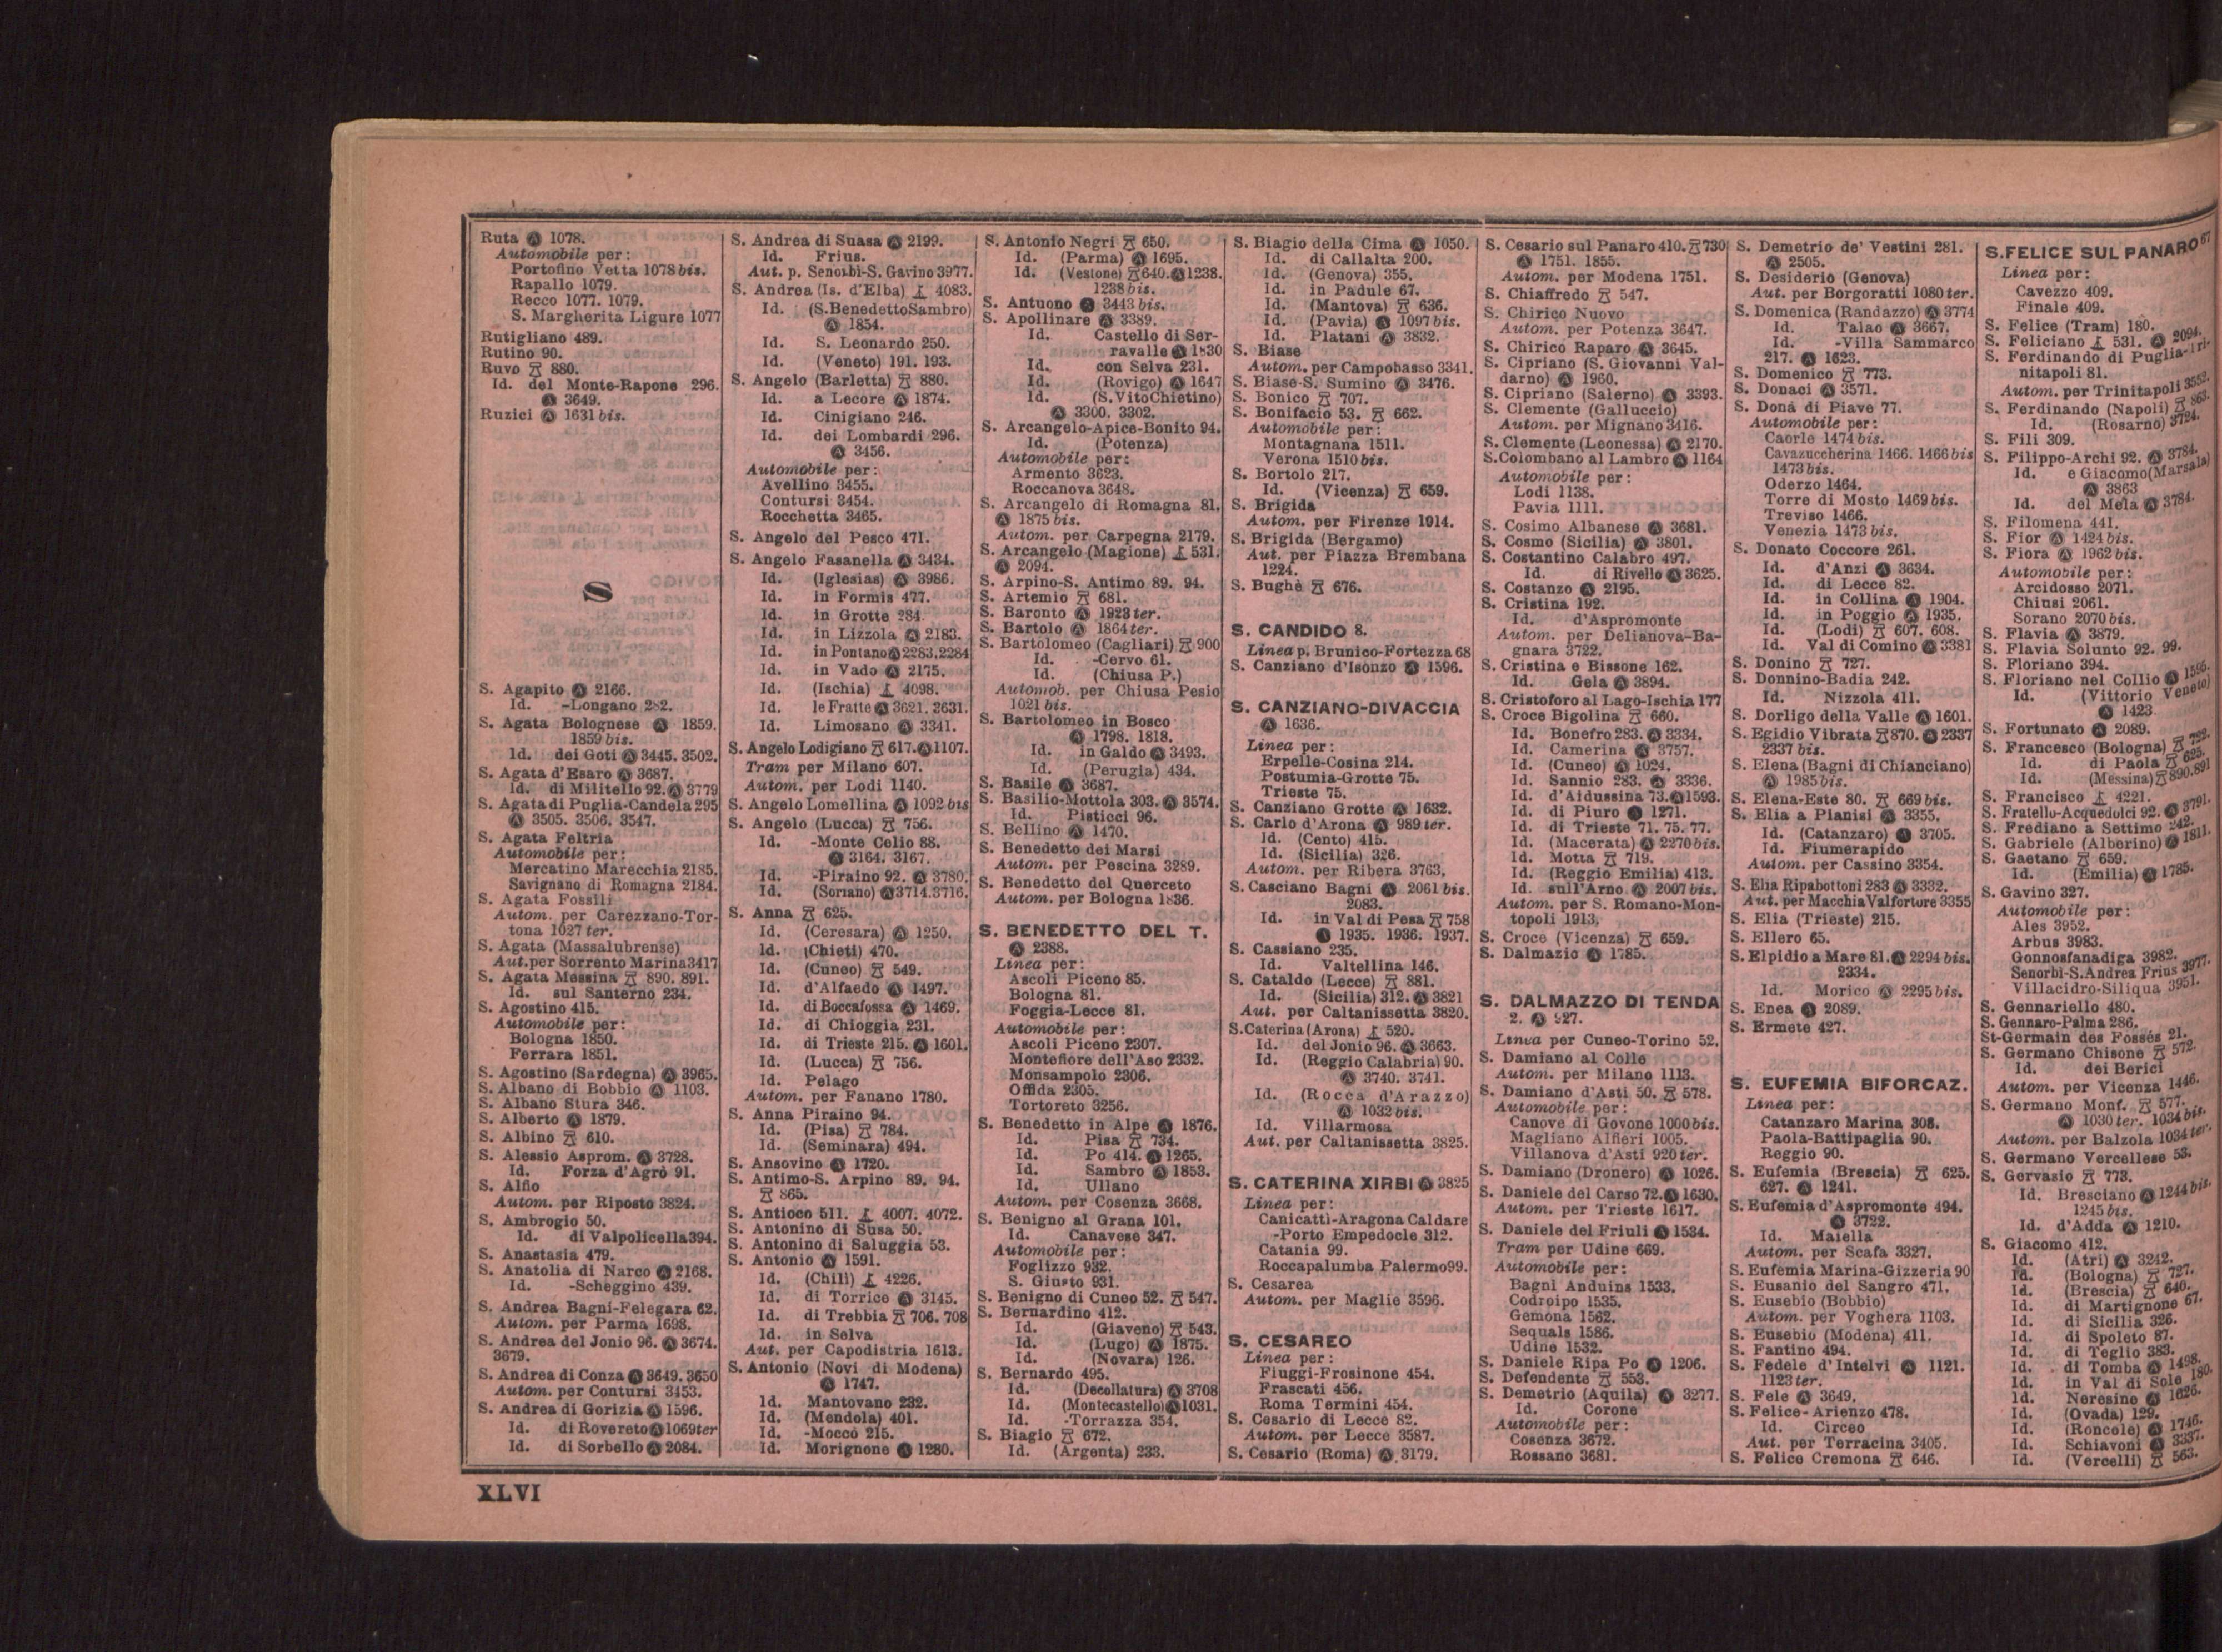 Ruta Ⓐ 1078.
Automobile per:
Portofino Vetta 1078 bis.
Rapallo 1079.
Recco 1077. 1079.
S. Margherita Ligure 1077
Rutigliano 489.
Rutino 90.
Ruvo 880.
Id. del Monte-Rapone 296.
Ⓐ 3649.
Ruzici Ⓐ 1631 bis.
S
S. Agapito Ⓐ 2166.
Id. -Longano 282.
S. Agata Bolognese Ⓐ 1859.
1859 bis.
Id. dei Goti Ⓐ 3445. 3502.
S. Agata d'Esaro Ⓐ 3687.
Id. di Militello 92. Ⓐ 3779
S. Agata di Puglia-Candela 295
Ⓐ 3505. 3506. 3547.
S. Agata Feltria
Automobile per:
Mercatino Marecchia 2185.
Savignano di Romagna 2184.
S. Agata Fossili
Autom. per Carezzano-Tor-
tona 1027 ter.
S. Agata (Massalubrense)
Aut. per Sorrento Marina 3417
S. Agata Messina 890. 891.
Id. sul Santerno 234.
S. Agostino 415.
Automobile per:
Bologna 1850.
Ferrara 1851.
S. Agostino (Sardegna) Ⓐ 3965.
S. Albano di Bobbio Ⓐ 1103.
S. Albano Stura 346.
S. Alberto Ⓐ 1879.
S. Albino 610.
S. Alessio Asprom. Ⓐ 3728.
Id. Forza d'Agrò 91.
S. Alfio
Autom. per Riposto 3824.
S. Ambrogio 50.
Id. di Valpolicella 394.
S. Anastasia 479.
S. Anatolia di Narco Ⓐ 2168.
Id. -Scheggino 439.
S. Andrea Bagni-Felegara 62.
Autom. per Parma 1698.
S. Andrea del Jonio 96. Ⓐ 3674.
3679.
S. Andrea di Conza Ⓐ 3649. 3650
Autom. per Contursi 3453.
S. Andrea di Gorizia Ⓐ 1596.
Id. di Rovereto Ⓐ 1069 ter
Id. di Sorbello Ⓐ 2084.
S. Andrea di Suasa Ⓐ 2199.
Id. Frius.
Aut. p. Senorbì-S. Gavino 3977.
S. Andrea (Is. d'Elba) 4083.
Id. (S. Benedetto Sambro)
Ⓐ 1854.
Id. S. Leonardo 250.
Id. (Veneto) 191. 193.
S. Angelo (Barletta) 880.
Id. a Lecore Ⓐ 1874.
Id. Cinigiano 246.
Id. dei Lombardi 296.
Ⓐ 3456.
Automobile per:
Avellino 3455.
Contursi 3454.
Rocchetta 3465.
S. Angelo del Pesco 471.
S. Angelo Fasanella Ⓐ 3434.
Id. (Iglesias) Ⓐ 3986.
Id. in Formis 477.
Id. in Grotte 284.
Id. in Lizzola Ⓐ 2183.
Id. in Pontano Ⓐ 2283. 2284
Id. in Vado Ⓐ 2175.
Id. (Ischia) 4098.
Id. le Fratte Ⓐ 3621. 3631.
Id. Limosano Ⓐ 3341.
S. Angelo Lodigiano 617. Ⓐ 1107.
Tram per Milano 607.
Autom. per Lodi 1140.
S. Angelo Lomellina Ⓐ 1092 bis
S. Angelo (Lucca) 756.
Id. -Monte Celio 88.
Ⓐ 3164. 3167.
Id. -Piraino 92. Ⓐ 3780.
Id. (Soriano) Ⓐ 3714. 3716.
S. Anna 625.
Id. (Ceresara) Ⓐ 1250.
Id. (Chieti) 470.
Id. (Cuneo) 549.
Id. d'Alfaedo Ⓐ 1497.
Id. di Boccafossa Ⓐ 1469.
Id. di Chioggia 231.
Id. di Trieste 215. Ⓐ 1601.
Id. (Lucca) 756.
Id. Pelago
Autom. per Fanano 1780.
S. Anna Piraino 94.
Id. (Pisa) 784.
Id. (Seminara) 494.
S. Ansovino Ⓐ 1720.
S. Antimo-S. Arpino 89. 94.
865.
S. Antioco 511. 4007. 4072.
S. Antonino di Susa 50.
S. Antonino di Saluggia 53.
S. Antonio Ⓐ 1591.
Id. (Chili) 4226.
Id. di Torrice Ⓐ 3145.
Id. di Trebbia 706. 708
Id. in Selva
Aut. per Capodistria 1613.
S. Antonio (Novi di Modena)
Ⓐ 1747.
Id. Mantovano 232.
Id. (Mendola) 401.
Id. -Moccò 215.
Id. Morignone Ⓐ 1280.
S. Antonio Negri 650.
Id. (Parma) Ⓐ 1695.
Id. (Vestone) 640. Ⓐ 1238.
1238 bis.
S. Antuono Ⓐ 3443 bis.
S. Apollinare Ⓐ 3389.
Id. Castello di Ser-
ravalle Ⓐ 1830
Id. con Selva 231.
Id. (Rovigo) Ⓐ 1647
Id. (S. Vito Chietino)
Ⓐ 3300. 3302.
S. Arcangelo-Apice-Bonito 94.
Id. (Potenza)
Automobile per:
Armento 3623.
Roccanova 3648.
S. Arcangelo di Romagna 81.
Ⓐ 1875 bis.
Autom. per Carpegna 2179.
S. Arcangelo (Magione) 531.
Ⓐ 2094.
S. Arpino-S. Antimo 89. 94.
S. Artemio 681.
S. Baronto Ⓐ 1923 ter.
S. Bartolo Ⓐ 1864 ter.
S. Bartolomeo (Cagliari) 900
Id. -Cervo 61.
Id. (Chiusa P.)
Automob. per Chiusa Pesio
1021 bis.
S. Bartolomeo in Bosco
Ⓐ 1798. 1818.
Id. in Galdo Ⓐ 3493.
Id. (Perugia) 434.
S. Basile Ⓐ 3687.
S. Basilio-Mottola 303. Ⓐ 3574.
Id. Pisticci 96.
S. Bellino Ⓐ 1470.
S. Benedetto dei Marsi
Autom. per Pescina 3289.
S. Benedetto del Querceto
Autom. per Bologna 1836.
S. BENEDETTO DEL T.
Ⓐ 2388.
Linea per:
Ascoli Piceno 85.
Bologna 81.
Foggia-Lecce 81.
Automobile per:
Ascoli Piceno 2307.
Montefiore dell'Aso 2332.
Monsampolo 2306.
Offida 2305.
Tortoreto 3256.
S. Benedetto in Alpe Ⓐ 1876.
Id. Pisa 734.
Id. Po 414. Ⓐ 1265.
Id. Sambro Ⓐ 1853.
Id. Ullano
Autom. per Cosenza 3668.
S. Benigno al Grana 101.
Id. Canavese 347.
Automobile per:
Foglizzo 932.
S. Giusto 931.
S. Benigno di Cuneo 52. 547.
S. Bernardino 412.
Id. (Giaveno) 543.
Id. (Lugo) Ⓐ 1875.
Id. (Novara) 126.
S. Bernardo 495.
Id. (Decollatura) Ⓐ 3708
Id. (Montecastello) Ⓐ 1031.
Id. -Torrazza 354.
S. Biagio 672.
Id. (Argenta) 233.
S. Biagio della Cima Ⓐ 1050.
Id. di Callalta 200.
Id. (Genova) 355.
Id. in Padule 67.
Id. (Mantova) 636.
Id. (Pavia) Ⓐ 1097 bis.
Id. Platani Ⓐ 3832.
S. Biase
Autom. per Campobasso 3341.
S. Biase-S. Sumino Ⓐ 3476.
S. Bonico 707.
S. Bonifacio 53. 662.
Automobile per:
Montagnana 1511.
Verona 1510 bis.
S. Bortolo 217.
Id. (Vicenza) 659.
S. Brigida
Autom. per Firenze 1914.
S. Brigida (Bergamo)
Aut. per Piazza Brembana
1224.
S. Bughè 676.
S. CANDIDO 8.
Linea p. Brunico-Fortezza 68
S. Canziano d'Isonzo Ⓐ 1596.
S. CANZIANO-DIVACCIA
Ⓐ 1636.
Linea per:
Erpelle-Cosina 214.
Postumia-Grotte 75.
Trieste 75.
S. Canziano Grotte Ⓐ 1632.
S. Carlo d'Arona Ⓐ 989 ter.
Id. (Cento) 415.
Id. (Sicilia) 326.
Autom. per Ribera 3763.
S. Casciano Bagni Ⓐ 2061 bis.
2083.
Id. in Val di Pesa 758
Ⓐ 1935. 1936. 1937.
S. Cassiano 235.
Id. Valtellina 146.
S. Cataldo (Lecce) 881.
Id. (Sicilia) 312. Ⓐ 3821
Aut. per Caltanissetta 3820.
S. Caterina (Arona) 520.
Id. del Jonio 96. Ⓐ 3663.
Id. (Reggio Calabria) 90.
Ⓐ 3740. 3741.
Id. (Rocca d'Arazzo)
Ⓐ 1032 bis.
Id. Villarmosa
Aut. per Caltanissetta 3825.
S. CATERINA XIRBI Ⓐ 3825
Linea per:
Canicattì-Aragona Caldare
-Porto Empedocle 312.
Catania 99.
Roccapalumba Palermo 99.
S. Cesarea
Autom. per Maglie 3596.
S. CESAREO
Linea per:
Fiuggi-Frosinone 454.
Frascati 456.
Roma Termini 454.
S. Cesario di Lecce 82.
Autom. per Lecce 3587.
S. Cesario (Roma) Ⓐ 3179.
S. Cesario sul Panaro 410. 730
Ⓐ 1751. 1855.
Autom. per Modena 1751.
S. Chiaffredo 547.
S. Chirico Nuovo
Autom. per Potenza 3647.
S. Chirico Raparo Ⓐ 3645.
S. Cipriano (S. Giovanni Val-
darno) Ⓐ 1960.
S. Cipriano (Salerno) Ⓐ 3393.
S. Clemente (Galluccio)
Autom. per Mignano 3416.
S. Clemente (Leonessa) Ⓐ 2170.
S. Colombano al Lambro Ⓐ 1164
Automobile per:
Lodi 1138.
Pavia 1111.
S. Cosimo Albanese Ⓐ 3681.
S. Cosmo (Sicilia) Ⓐ 3801.
S. Costantino Calabro 497.
Id. di Rivello Ⓐ 3625.
S. Costanzo Ⓐ 2195.
S. Cristina 192.
Id. d'Aspromonte
Autom. per Delianova-Ba-
gnara 3722.
S. Cristina e Bissone 162.
Id. Gela Ⓐ 3894.
S. Cristoforo al Lago-Ischia 177
S. Croce Bigolina 660.
Id. Bonefro 283. Ⓐ 3334.
Id. Camerina Ⓐ 3757.
Id. (Cuneo) Ⓐ 1024.
Id. Sannio 283. Ⓐ 3336.
Id. d'Aidussina 73. Ⓐ 1593.
Id. di Piuro Ⓐ 1271.
Id. di Trieste 71. 75. 77.
Id. (Macerata) Ⓐ 2270 bis.
Id. Motta 719.
Id. (Reggio Emilia) 413.
Id. sull'Arno Ⓐ 2007 bis.
Autom. per S. Romano-Mon-
topoli 1913.
S. Croce (Vicenza) 659.
S. Dalmazio Ⓐ 1785.
S. DALMAZZO DI TENDA
2. Ⓐ 927.
Linea per Cuneo-Torino 52.
S. Damiano al Colle
Autom. per Milano 1113.
S. Damiano d'Asti 50. 578.
Automobile per:
Canove di Govone 1000 bis.
Magliano Alfieri 1005.
Villanova d'Asti 920 ter.
S. Damiano (Dronero) Ⓐ 1026.
S. Daniele del Carso 72. Ⓐ 1630.
Autom. per Trieste 1617.
S. Daniele del Friuli Ⓐ 1534.
Tram per Udine 669.
Automobile per:
Bagni Anduins 1533.
Codroipo 1535.
Gemona 1562.
Sequals 1586.
Udine 1532.
S. Daniele Ripa Po Ⓐ 1206.
S. Defendente 553.
S. Demetrio (Aquila) Ⓐ 3277.
Id. Corone
Automobile per:
Cosenza 3672.
Rossano 3681.
S. Demetrio de' Vestini 281.
Ⓐ 2505.
S. Desiderio (Genova)
Aut. per Borgoratti 1080 ter.
S. Domenica (Randazzo) Ⓐ 3774
Id. Talao Ⓐ 3667.
Id. -Villa Sammarco
217. Ⓐ 1623.
S. Domenico 773.
S. Donaci Ⓐ 3571.
S. Donà di Piave 77.
Automobile per:
Caorle 1474 bis.
Cavazuccherina 1466. 1466 bis
1473 bis.
Oderzo 1464.
Torre di Mosto 1469 bis.
Treviso 1466.
Venezia 1473 bis.
S. Donato Coccore 261.
Id. d'Anzi Ⓐ 3634.
Id. di Lecce 82.
Id. in Collina Ⓐ 1904.
Id. in Poggio Ⓐ 1935.
Id. (Lodi) 607. 608.
Id. Val di Comino Ⓐ 3381
S. Donino 727.
S. Donnino-Badia 242.
Id. Nizzola 411.
S. Dorligo della Valle Ⓐ 1601.
S. Egidio Vibrata 870. Ⓐ 2337
2337 bis.
S. Elena (Bagni di Chianciano)
Ⓐ 1985 bis.
S. Elena-Este 80. 669 bis.
S. Elia a Pianisi Ⓐ 3355.
Id. (Catanzaro) Ⓐ 3705.
Id. Fiumerapido
Autom. per Cassino 3354.
S. Elia Ripabottoni 283 Ⓐ 3332.
Aut. per Macchia Valfortore 3355
S. Elia (Trieste) 215.
S. Ellero 65.
S. Elpidio a Mare 81. Ⓐ 2294 bis.
2334.
Id. Morico Ⓐ 2295 bis.
S. Enea Ⓐ 2089.
S. Ermete 427.
S. EUFEMIA BIFORCAZ.
Linea per:
Catanzaro Marina 308.
Paola-Battipaglia 90.
Reggio 90.
S. Eufemia (Brescia) 625.
627. Ⓐ 1241.
S. Eufemia d'Aspromonte 494.
Ⓐ 3722.
Id. Maiella
Autom. per Scafa 3327.
S. Eufemia Marina-Gizzeria 90
S. Eusanio del Sangro 471.
S. Eusebio (Bobbio)
Autom. per Voghera 1103.
S. Eusebio (Modena) 411.
S. Fantino 494.
S. Fedele d'Intelvi Ⓐ 1121.
1123 ter.
S. Fele Ⓐ 3649.
S. Felice-Arienzo 478.
Id. Circeo
Aut. per Terracina 3405.
S. Felice Cremona 646.
S. FELICE SUL PANARO 67
Linea per:
Cavezzo 409.
Finale 409.
S. Felice (Tram) 180.
S. Feliciano 531. Ⓐ 2094.
S. Ferdinando di Puglia-Tri-
nitapoli 81.
Autom. per Trinitapoli 3552.
S. Ferdinando (Napoli) 863.
Id. (Rosarno) 3724.
S. Fili 309.
S. Filippo-Archi 92. Ⓐ 3784.
Id. e Giacomo (Marsala)
Ⓐ 3863
Id. del Mela Ⓐ 3784.
S. Filomena 441.
S. Fior Ⓐ 1424 bis.
S. Fiora Ⓐ 1962 bis.
Automobile per:
Arcidosso 2071.
Chiusi 2061.
Sorano 2070 bis.
S. Flavia Ⓐ 3879.
S. Flavia Solunto 92. 99.
S. Floriano 394.
S. Floriano nel Collio Ⓐ 1596.
Id. (Vittorio Veneto)
Ⓐ 1423
S. Fortunato Ⓐ 2089.
S. Francesco (Bologna) 722.
Id. di Paola 625.
Id. (Messina) 890. 891
S. Francisco 4221.
S. Fratello-Acquedolci 92. Ⓐ 3791.
S. Frediano a Settimo 242.
S. Gabriele (Alberino) Ⓐ 1811.
S. Gaetano 659.
Id. (Emilia) Ⓐ 1785.
S. Gavino 327.
Automobile per:
Ales 3952.
Arbus 3983.
Gonnosfanadiga 3982.
Senorbì-S. Andrea Frius 3977.
Villacidro-Siliqua 3951.
S. Gennariello 480.
S. Gennaro-Palma 286.
St-Germain des Fossés 21.
S. Germano Chisone 572.
Id. dei Berici
Autom. per Vicenza 1446.
S. Germano Monf. 577.
Ⓐ 1030 ter. 1034 bis.
Autom. per Balzola 1034 ter.
S. Germano Vercellese 53.
S. Gervasio 773.
Id. Bresciano Ⓐ 1244 bis.
1245 bis.
Id. d'Adda Ⓐ 1210.
S. Giacomo 412.
Id. (Atri) Ⓐ 3242.
Id. (Bologna) 727.
Id. (Brescia) 640.
Id. di Martignone 67.
Id. di Sicilia 326.
Id. di Spoleto 87.
Id. di Teglio 383.
Id. di Tomba Ⓐ 1498.
Id. in Val di Sole 180.
Id. Neresine Ⓐ 1626.
Id. (Ovada) 129.
Id. (Roncole) Ⓐ 1746.
Id. Schiavoni Ⓐ 3337.
Id. (Vercelli) 563.
XLVI